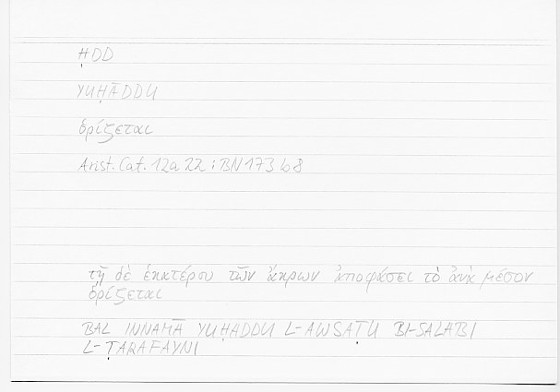 ḤDD
YUḤADDU
ὁρίζεται
Arist. Cat. 12a 22 ; BN 173 b 8
τῇ δὲ ἑκατέρου τῶν ἄκρων ἀποφάσει τὸ ἀνὰ μέσον
ὁρίζεται
BAL INNAMĀ YUḤADDU L-AWSAṬU BI-SALABI
L-ṬARAFAYNI